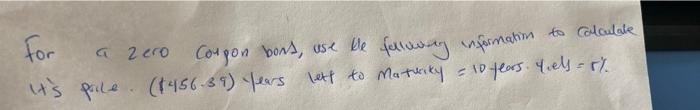 For a zero Coupon bond, use the following information to Calculate
it's price. ($456.39) years left to Maturity = 10 years. Yield = 8%.